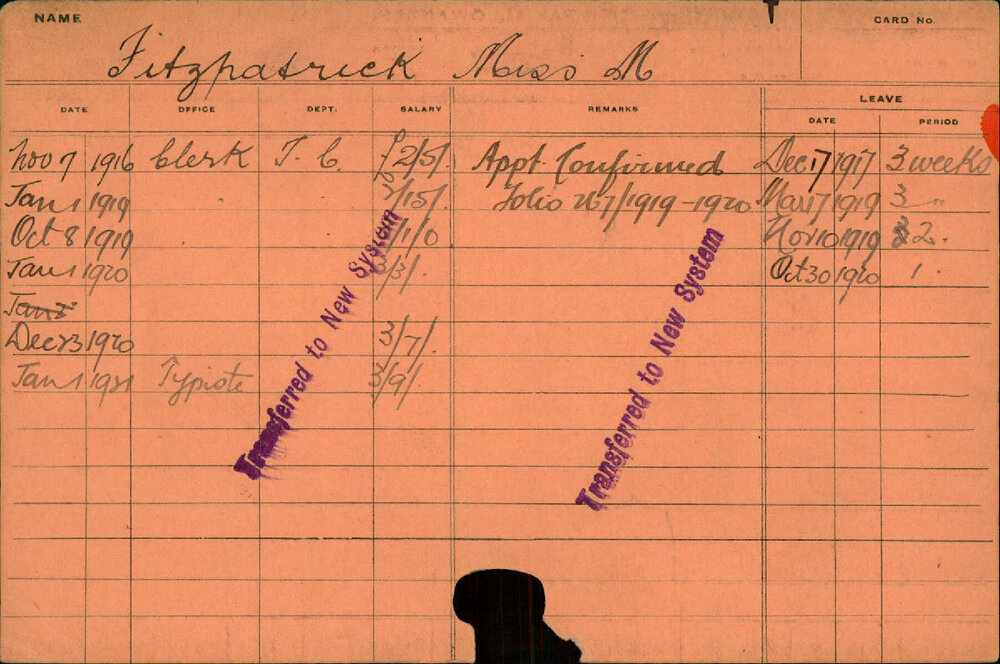 NAME
CARD No.
Fitzpatrick Miss M
DATE OFFICE DEPT. SALARY REMARKS LEAVE
DATE PERIOD
Nov 7 1916 Clerk T. C. £2/5/. Appt Confirmed Dec 17 1917 3 weeks
Jan 1 1919 /15/. Folio 267/1919-1920 Mar 17 1919 3 "
Oct 8 1919 /1/0 Nov 10 1919 2 .
Jan 1 1920 3/3/. Oct 30 1920 1 .
Jan 1
Dec 23 1920 3/7/.
Jan 1 1921 Typiste 3/9/.
Transferred to New System
Transferred to New System